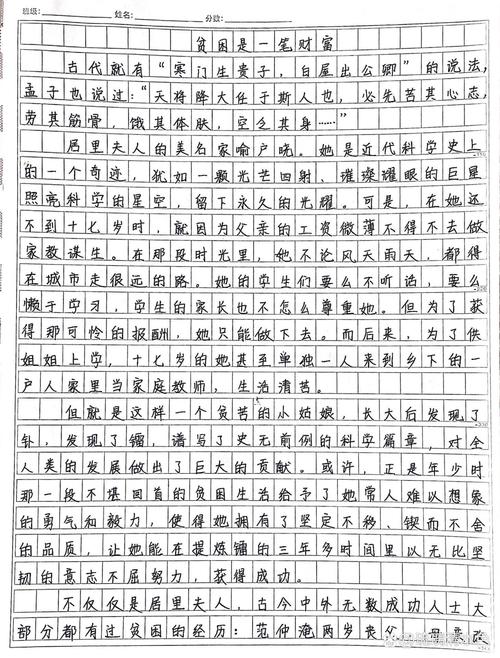 班级: 姓名: 分数:
贫困是一笔财富
古代就有“寒门生贵子，白屋出公卿”的说法，
孟子也说过：“天将降大任于斯人也，必先苦其心志，
劳其筋骨，饿其体肤，空乏其身……”
居里夫人的美名家喻户晓。她是近代科学史上
的一个奇迹，犹如一颗光芒四射、璀璨耀眼的巨星
照亮科学的星空，留下永久的光耀。可是，在她还
不到十七岁时，就因为父亲的工资微薄不得不去做
家教谋生。在那段时光里，她不论风天雨天，都得
在城市走很远的路。她的学生们要么不听话，要么
懒于学习，学生的家长也不怎么尊重她。但为了获
得那可怜的报酬，她只能做下去。而后来，为了供
姐姐上学，十七岁的她甚至单独一人来到乡下的一
户人家里当家庭教师，生活清苦。
但就是这样一个贫苦的小姑娘，长大后发现了
钋，发现了镭，谱写了史无前例的科学篇章，对全
人类的发展做出了巨大的贡献。或许，正是年少时
那一段不堪回首的贫困生活给予了她常人难以想象
的勇气和毅力，使得她拥有了坚定不移、锲而不舍
的品质，让她能在提炼镭的三年多时间里以无比坚
韧的意志不屈努力，获得成功。
不仅仅是居里夫人，古今中外无数成功人士大
部分都有过贫困的经历：范仲淹两岁丧父，母意改